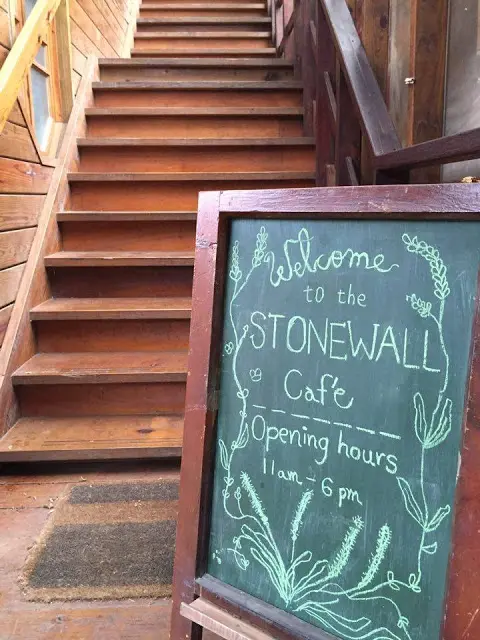 Welcome
to the
STONEWALL
Café
Opening hours
11am - 6pm